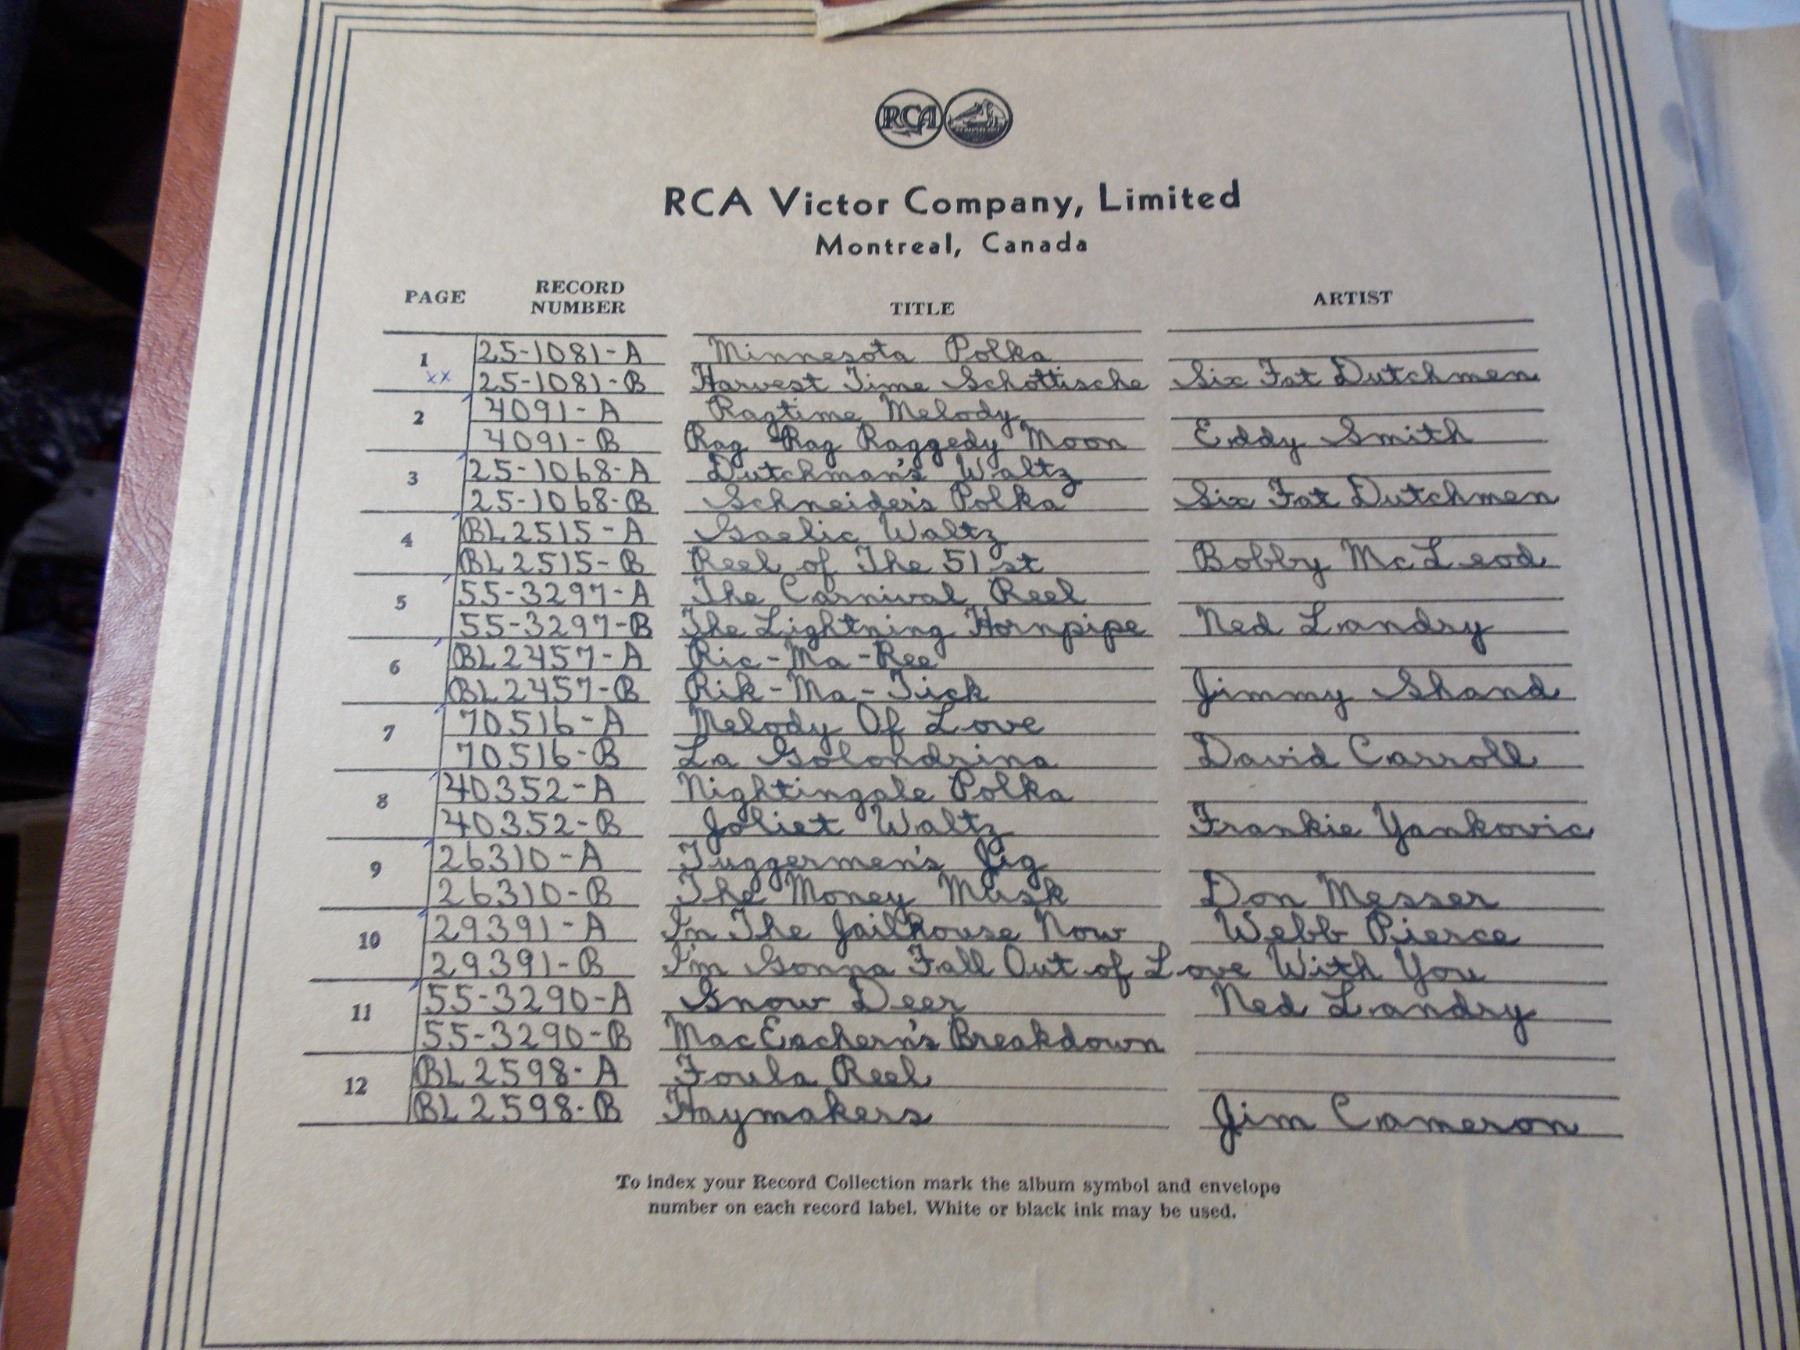 RCA
RCA Victor Company, Limited
Montreal, Canada
PAGE RECORD NUMBER TITLE ARTIST
1 25-1081-A Minnesota Polka
xx 25-1081-B Harvest Time Schottische Six Fat Dutchmen
2 4091-A Ragtime Melody
4091-B Rag Rag Raggedy Moon Eddy Smith
3 25-1068-A Dutchman's Waltz
25-1068-B Schneider's Polka Six Fat Dutchmen
4 BL2515-A Gaelic Waltz
BL2515-B Reel of The 51st Bobby McLeod
5 55-3297-A The Carnival Reel
55-3297-B The Lightning Hornpipe Ned Landry
6 BL2457-A Ric-Ma-Ree
BL2457-B Rik-Ma-Tick Jimmy Shand
7 70516-A Melody Of Love
70516-B La Golondrina David Carroll
8 40352-A Nightingale Polka
40352-B Joliet Waltz Frankie Yankovic
9 26310-A Tuggermen's Jig
26310-B The Money Musk Don Messer
10 29391-A In The Jailhouse Now Webb Pierce
29391-B I'm Gonna Fall Out of Love With You
11 55-3290-A Snow Deer Ned Landry
55-3290-B MacEachern's Breakdown
12 BL2598-A Foula Reel
BL2598-B Haymakers Jim Cameron
To index your Record Collection mark the album symbol and envelope
number on each record label. White or black ink may be used.